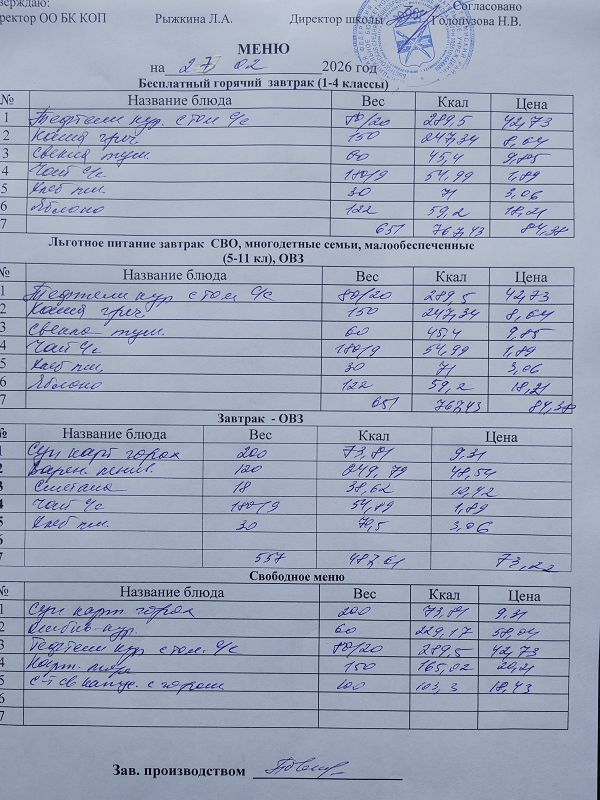 тверждаю: Согласовано
ректор ОО БК КОП Рыжкина Л.А. Директор школы Голопузова Н.В.
МЕНЮ
на 27 02 2026 год
Бесплатный горячий завтрак (1-4 классы)
№ Название блюда Вес Ккал Цена
1 Тефтели кур. с том с/с 80/20 289,5 42,73
2 Каша греч. 150 247,34 8,64
3 Свекла туш. 60 45,4 9,85
4 Чай с/с 180/9 54,99 1,89
5 Хлеб пш. 30 71 3,06
6 Яблоко 122 59,2 18,21
7 651 767,43 84,38
Льготное питание завтрак СВО, многодетные семьи, малообеспеченные
(5-11 кл), ОВЗ
№ Название блюда Вес Ккал Цена
1 Тефтели кур с том с/с 80/20 289,5 42,73
2 Каша греч. 150 247,34 8,64
3 Свекла туш. 60 45,4 9,85
4 Чай с/с 180/9 54,99 1,89
5 Хлеб пш. 30 71 3,06
6 Яблоко 122 59,2 18,21
7 651 767,43 84,38
Завтрак - ОВЗ
№ Название блюда Вес Ккал Цена
1 Суп карт горох 200 73,81 9,31
2 Варен. 120 249,79 48,54
3 Сметана 18 38,62 10,42
4 Чай с/с 180/9 54,89 1,89
5 Хлеб пш. 30 70,5 3,06
6
7 557 487,61 73,22
Свободное меню
№ Название блюда Вес Ккал Цена
1 Суп карт. горох 200 73,81 9,31
2 кур. 60 229,17 58,04
3 Тефтели кур с том. с/с 80/20 289,5 42,73
4 Карт. пюре 150 165,02 20,21
5 С-т св капус. с горош 100 103,3 18,43
6
7
Зав. производством